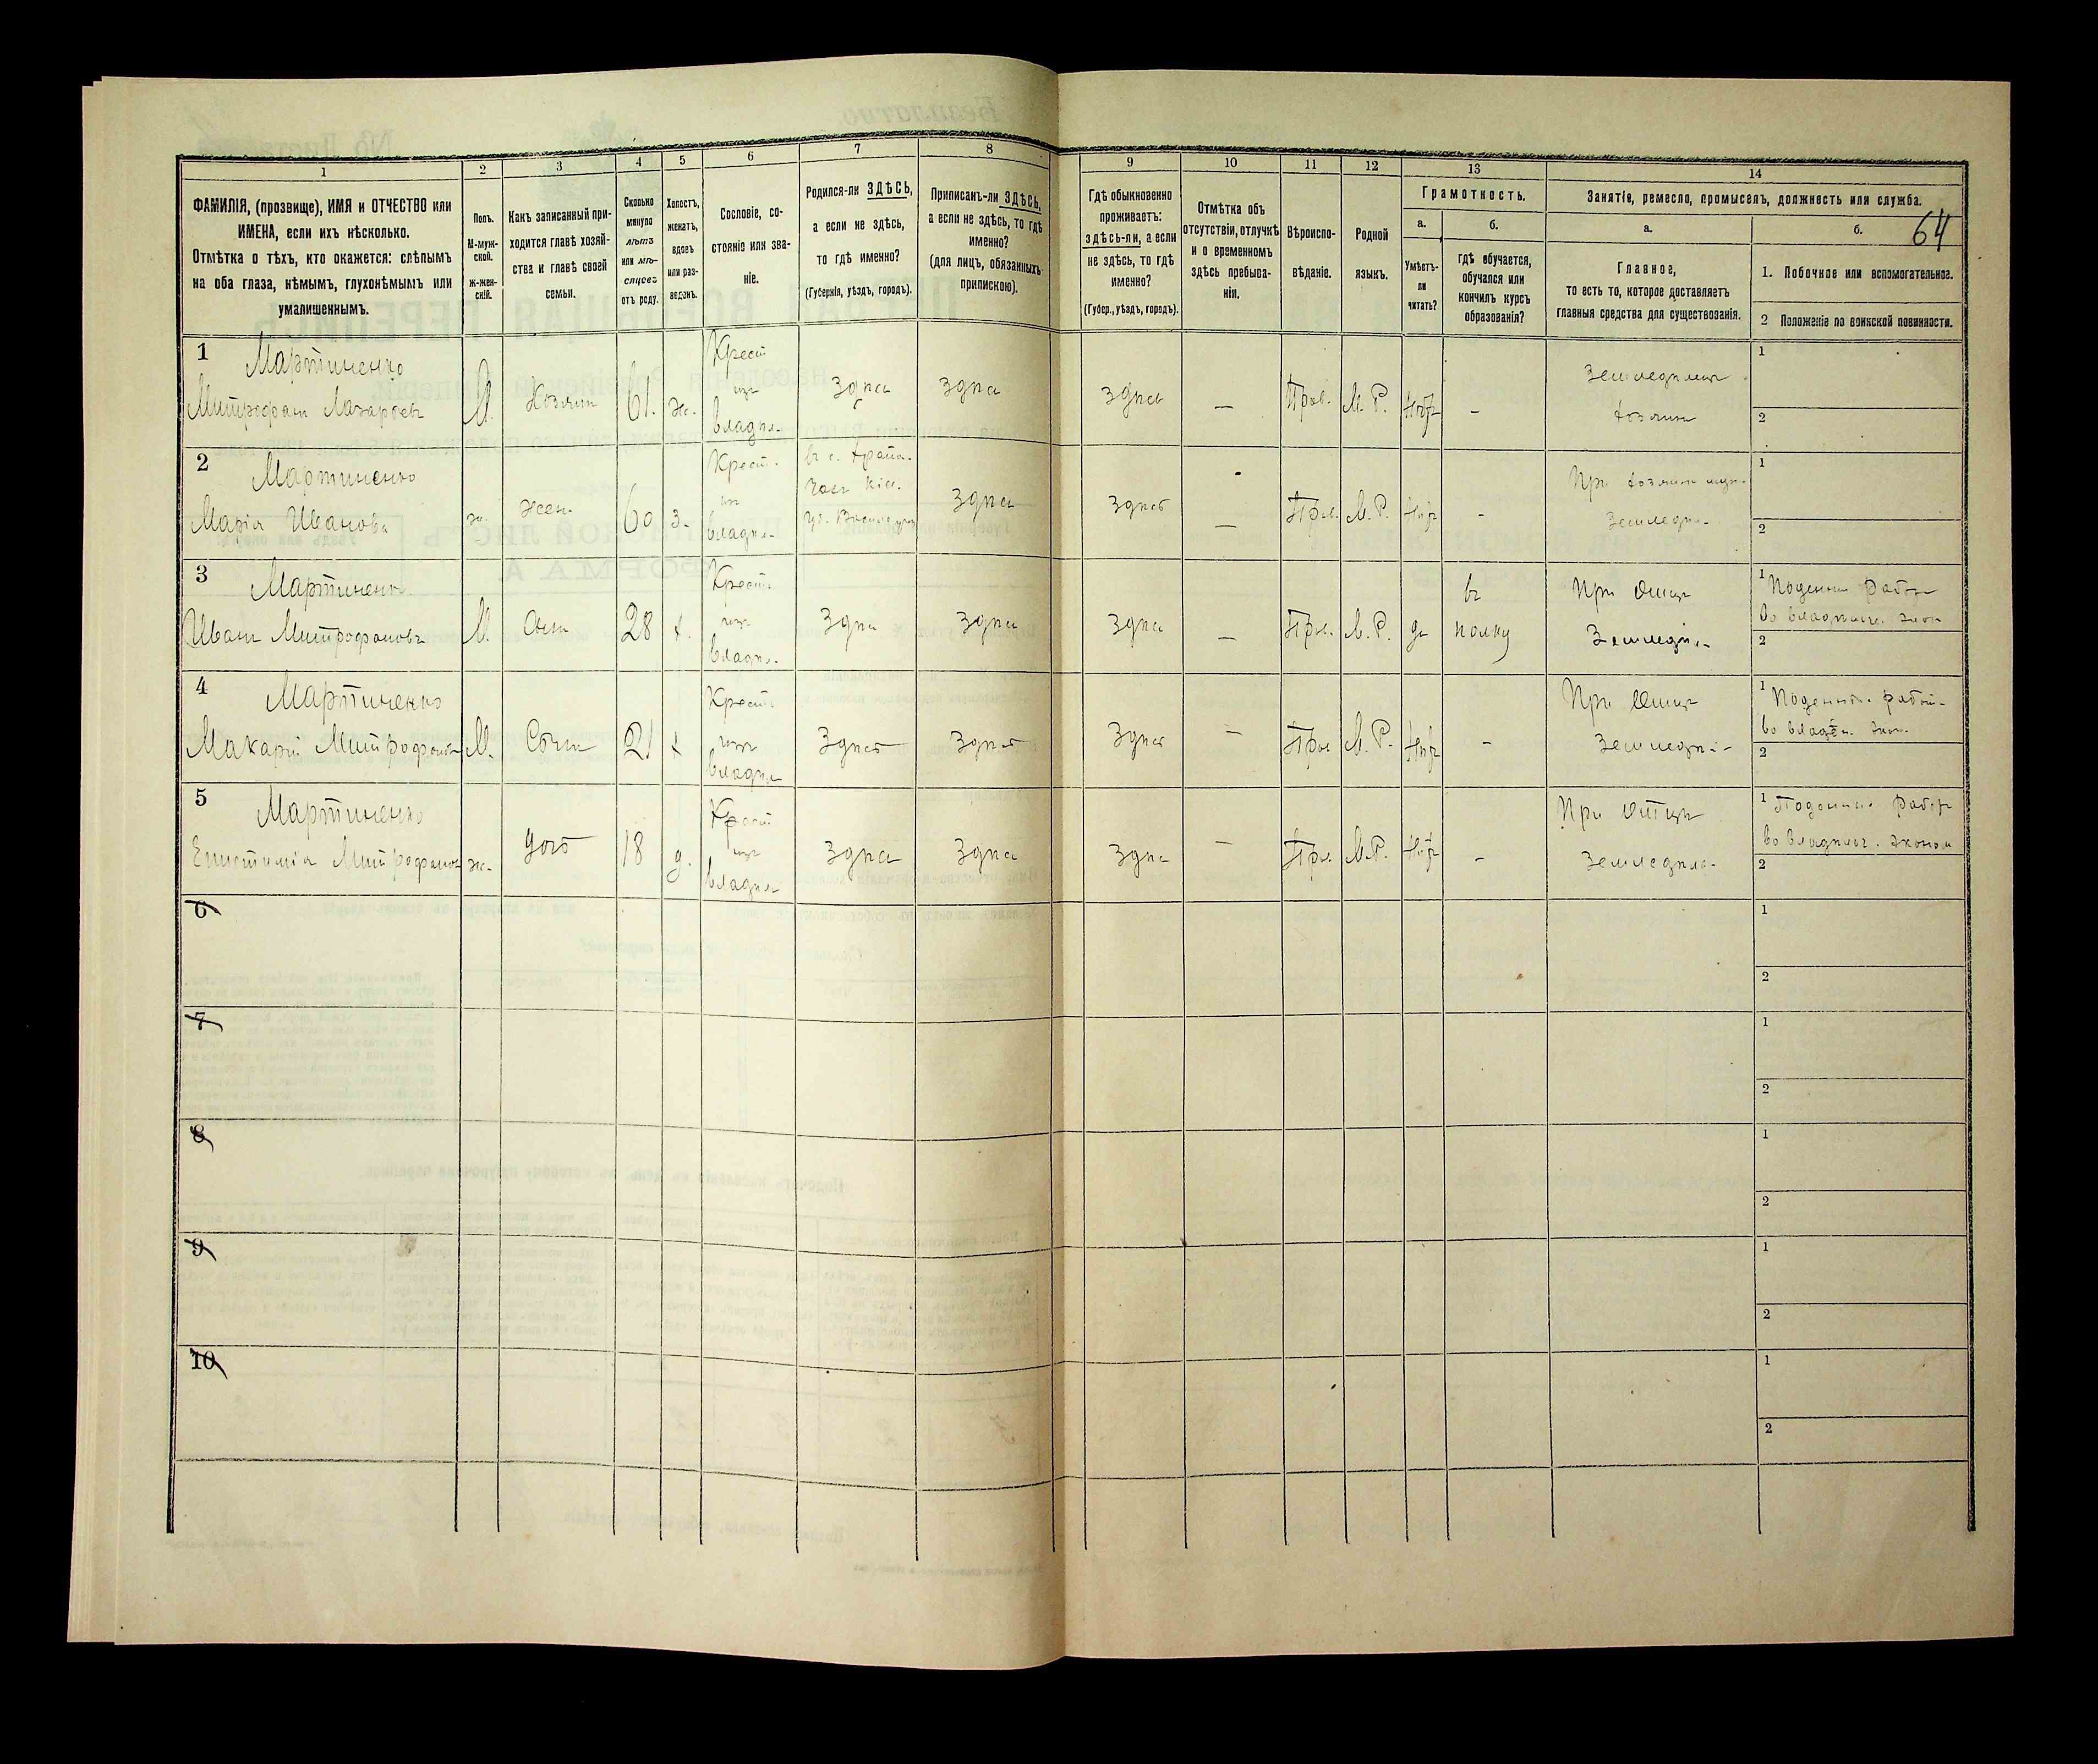 64
1 2 3 4 5 6 7 8 9 10 11 12 13 14
ФАМИЛІЯ, (прозвище), ИМЯ и ОТЧЕСТВО или
ИМЕНА, если ихъ нѣсколько.
Отмѣтка о тѣхъ, кто окажется: слѣпымъ
на оба глаза, нѣмымъ, глухонѣмымъ или
умалишеннымъ.
Полъ.
М-муж-
ской.
Ж-жен-
скій.
Какъ записанный при-
ходится главѣ хозяй-
ства и главѣ своей
семьи.
Сколько
минуло
лѣтъ
или мѣ-
сяцевъ
отъ роду.
Холостъ,
женатъ,
вдовъ
или раз-
веденъ.
Сословіе, со-
стояніе или зва-
ніе.
Родился-ли ЗДѢСЬ,
а если не здѣсь,
то гдѣ именно?
(Губернія, уѣздъ, городъ).
Приписанъ-ли ЗДѢСЬ,
а если не здѣсь, то гдѣ
именно?
(для лицъ, обязанныхъ
припискою).
Гдѣ обыкновенно
проживаетъ:
здѣсь-ли, а если
не здѣсь, то гдѣ
именно?
(Губер., уѣздъ, городъ).
Отмѣтка объ
отсутствіи, отлучкѣ
и о временномъ
здѣсь пребыва-
ніи.
Вѣроиспо-
вѣданіе.
Родной
языкъ.
Грамотность.
а.
Умѣетъ-
ли
читать?
б.
гдѣ обучается,
обучался или
кончилъ курсъ
образованія?
Занятіе, ремесло, промыселъ, должность или служба.
а.
Главное,
то есть то, которое доставляетъ
главныя средства для существованія.
б.
1. Побочное или вспомогательное.
2 Положеніе по воинской повинности.
1 Мартиненко
Митрофан Лазарѣев М. Хозяин 61. ж.
Крест
из
владѣл.
Здѣсь Здѣсь Здѣсь — Прав. М. Р. Нѣт -
Земледѣлец
хозяин
1
2
2 Мартиненко
Марія Иванова ж. жен. 60 з.
Крест.
из
владѣл.
Здѣсь Здѣсь — Прав. М. Р. Нѣт -
Земледѣл.
1
2
3 Мартиненко
Иван Митрофанов М. Сын 28 х.
Крест.
из
владѣл.
Здѣсь Здѣсь Здѣсь — Прав. М. Р. да
въ
полку
При Отце
Земледѣл.
1 Поденни работ
2
4 Мартиненко
Макарій Митрофанов М. Сын 21 х
Крест.
из
владѣл
Здѣсь Здѣсь Здѣсь — Прав М. Р. Нѣт -
При Отце
Земледѣл.
1
2
5 Мартиненко
Епистимія Митрофанов ж. дочь 18 д.
Крест
из
владѣл
Здѣсь Здѣсь Здѣсь — Прав М.Р. Нѣт -
При Отце
Земледѣл.
1 Поденни работ
во владѣльч. эконом
2
6
1
2
7
1
2
8
1
2
9
1
2
10
1
2